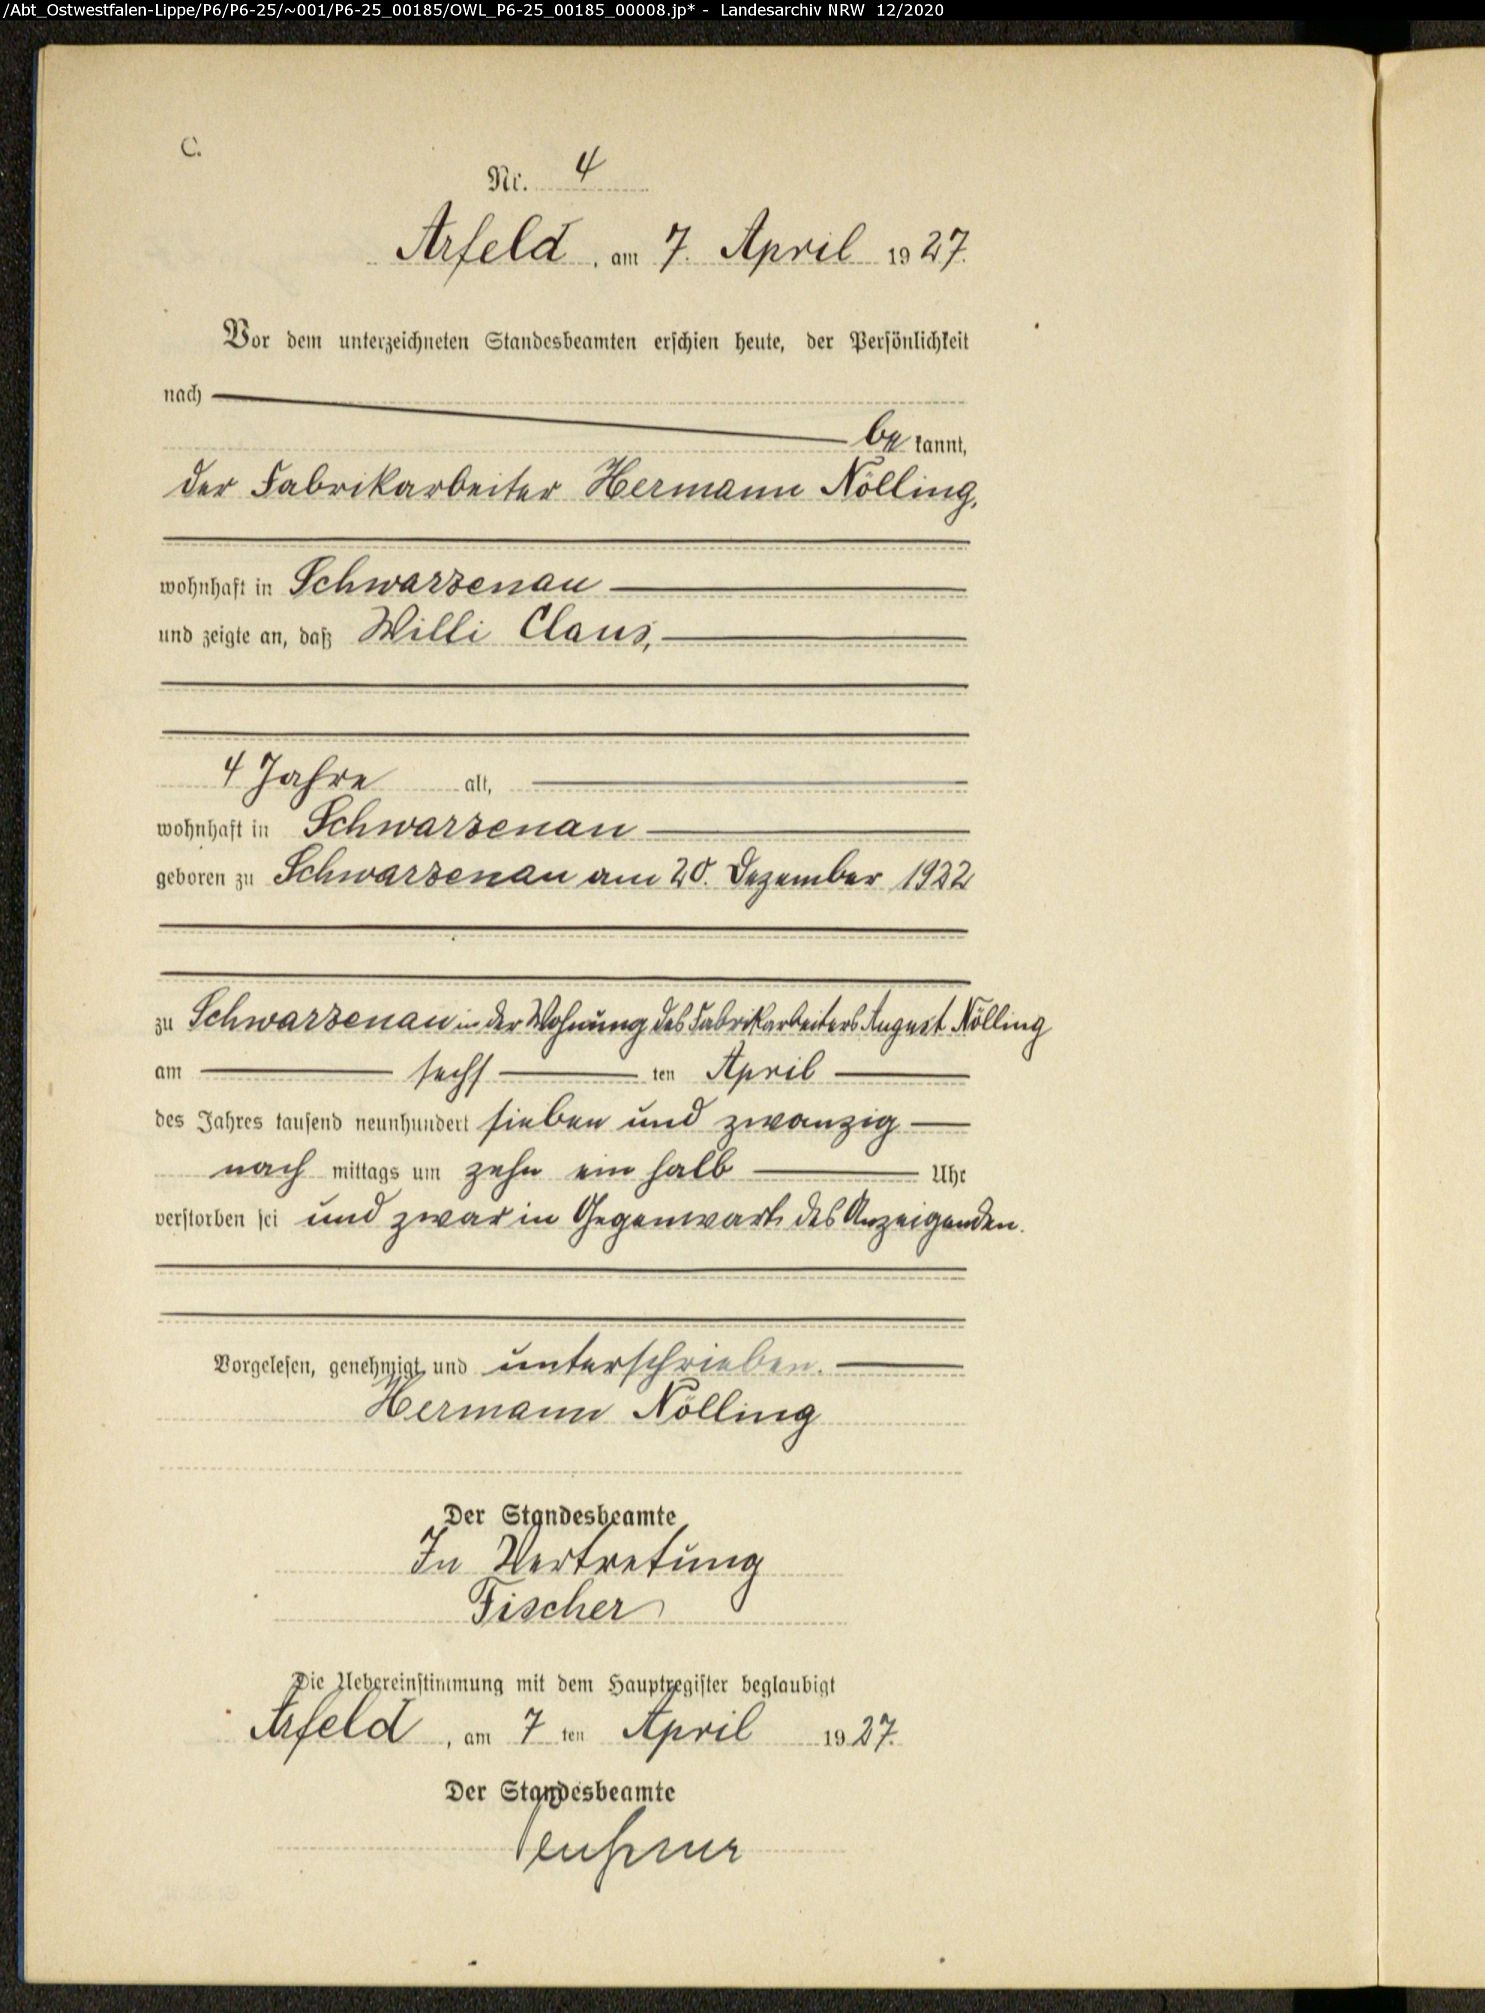 /Abt_Ostwestfalen-Lippe/P6/P6-25/~001/P6-25_00185/OWL_P6-25_00185_00008.jp* - Landesarchiv NRW 12/2020
C.
Nr. 4
Arfeld, am 7. April 1927.
Vor dem unterzeichneten Standesbeamten erschien heute, der Persönlichkeit
nach
be kannt,
der Fabrikarbeiter Hermann Nölling,
wohnhaft in Schwarzenau
und zeigte an, daß Willi Claus,
4 Jahre alt,
wohnhaft in Schwarzenau
geboren zu Schwarzenau am 20. Dezember 1922
zu Schwarzenau in der Wohnung des Fabrikarbeiters August Nölling
am sechs ten April
des Jahres tausend neunhundert sieben und zwanzig
nach mittags um zehn ein halb Uhr
verstorben sei und zwar in Gegenwart des Anzeigenden.
Vorgelesen, genehmigt und unterschrieben.
Hermann Nölling
Der Standesbeamte
In Vertretung
Fischer
Die Uebereinstimmung mit dem Hauptregister beglaubigt
Arfeld, am 7 ten April 1927.
Der Standesbeamte